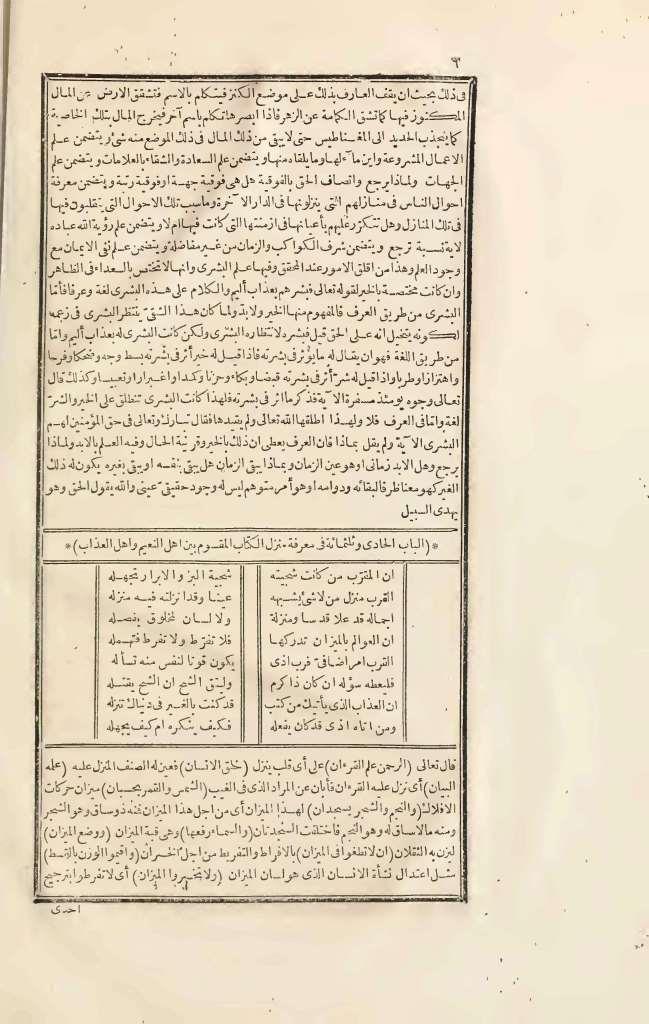 ٣
فى ذلك بحيث ان يقف العارف بذلك على موضع الكنز فيتكلم بالاسم فتشقق الارض عن المال
المكنوز فيها كما تشق الكمامة عن الزهر فاذا ابصرها تكلم باسم آخر فيخرج المال بتلك الخاصية
كما ينجذب الحديد الى المغناطيس حتى لا يبقى من ذلك المال فى ذلك الموضع منه شئ ويتضمن علم
الاعمال المشروعة واين مآلها وما يلقاه منها ويتضمن علم السعادة والشقاء بالعلامات ويتضمن علم
الجهات ولماذا يرجع واتصاف الحق بالفوقية هل هى فوقية جهة او فوقية رتبة ويتضمن معرفة
احوال الناس فى منازلهم التى ينزلونها فى الدار الآخرة وما سبب تلك الاحوال التى يتقلبون فيها
فى تلك المنازل وهل تتكرر عليهم بأعيانها فى ازمنتها التى كانت فيها ام لا ويتضمن علم رؤية الله عباده
لاية نسبة ترجع ويتضمن شرف الكواكب والزمان من غير مفاضلة ويتضمن علم نفى الايمان مع
وجود العلم وهذا من اقلق الامور عند المحقق وفيها علم البشرى وانها لا تختص بالسعداء فى الظاهر
وان كانت مختصة بالخير لقوله تعالى فبشرهم بعذاب أليم والكلام على هذه البشرى لغة وعرفا فأما
البشرى من طريق العرف فالمفهوم منها الخير ولا بد ولما كان هذا الشقى ينتظر البشرى فى زعمه
لكونه يتخيل انه على الحق قيل فبشره لانتظاره البشرى ولكن كانت البشرى له بعذاب أليم واما
من طريق اللغة فهو ان يقال له ما يؤثر فى بشرته فاذا قيل له خبر أثر فى بشرته بسط وجه وضحكا وفرحا
واهتزازا وطربا واذا قيل له شر أثر فى بشرته قبضا وبكاء وحزنا وكمدا واغبرارا وتعبيسا وكذلك قال
تعالى وجوه يومئذ مسفرة الآية فذكر ما اثر فى بشرته فلهذا كانت البشرى تنطلق على الخير والشر
لغة واما فى العرف فلا ولهذا اطلقها الله تعالى ولم يقيدها فقال تبارك وتعالى فى حق المؤمنين لهم
البشرى الآية ولم يقل بماذا فان العرف يعطى ان ذلك بالخير وقرينة الحال وفيه العلم بالابد ولماذا
يرجع وهل الابد زمانى او هو عين الزمان وبماذا يبقى الزمان هل يبقى بنفسه او يبقى بغيره يكون له ذلك
الغير كهو معنا ظرفا لبقائه ودوامه او هو أمر متوهم ليس له وجود حقيقى عينى والله يقول الحق وهو
يهدى السبيل
*(الباب الحادى وثلثمائة فى معرفة منزل الكتاب المقسوم بين اهل النعيم واهل العذاب)*
ان المقرب من كانت سجيته سجية البر والابرار تجهله
القرب منزل من لا شئ يشبهه عينا وقد انزلته فيه منزله
اجماله قد علا قدسا ومنزلة ولا لسان لمخلوق يفصله
ان العوالم بالميزان تدركها فلا تفرط ولا تفرط فتهمله
القرب امر اضافى فرب اذى يكون قوتا لنفس منه تسأله
فليعطه سؤله ان كان ذا كرم وليتق الشح ان الشح يقتله
ان العذاب الذى يأتيك من كثب قد كنت بالغير فى دنياك تنزله
ومن اتاه اذى قد كان يفعله فكيف ينكره ام كيف يجهله
قال تعالى (الرحمن علم القرءان) على أى قلب ينزل (خلق الانسان) فعين له الصنف المنزل عليه (علمه
البيان) أى نزل عليه القرءان فأبان عن المراد الذى فى الغيب (الشمس والقمر بحسبان) ميزان حركات
الافلاك (والنجم والشجر يسجدان) لهذا الميزان أى من اجل هذا الميزان فمنه ذو ساق وهو الشجر
ومنه ما لا ساق له وهو النجم فاختلفت السجدتان (والسماء رفعها) وهى قبة الميزان (ووضع الميزان)
ليزن به الثقلان (ان لا تطغوا فى الميزان) بالافراط والتفريط من اجل الخسران (واقيموا الوزن بالقسط)
مثل اعتدال نشأة الانسان الذى هو لسان الميزان (ولا تخسروا الميزان) أى لا تفرطوا بترجيح
احدى